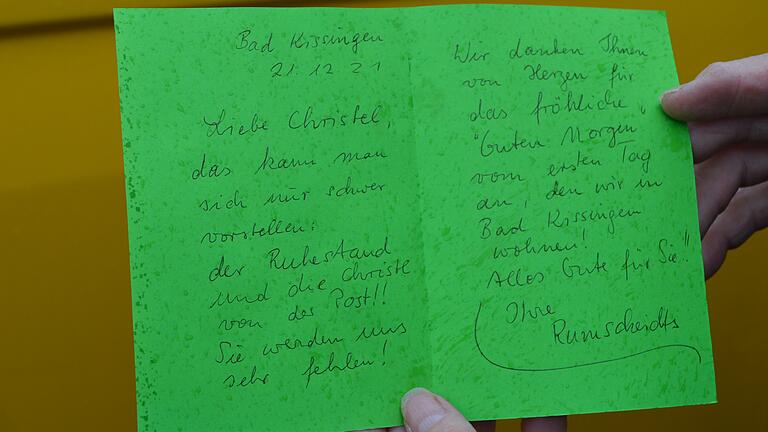 Bad Kissingen
21.12.21
Liebe Christel,
das kann man
sich nur schwer
vorstellen:
der Ruhestand
und die Christl
von der Post!!
Sie werden uns
sehr fehlen!
Wir danken Ihnen
von Herzen für
das fröhliche
"Guten Morgen"
vom ersten Tag
an, den wir in
Bad Kissingen
wohnen!
Alles Gute für Sie!!
Ihre
Rumscheidts